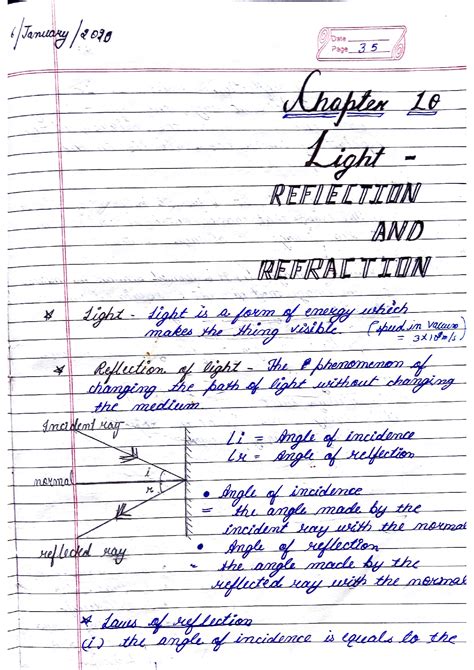 6/January/2020
Date
Page 35
Chapter 10
Light -
REFLECTION
AND
REFRACTION
* Light - Light is a form of energy which
makes the thing visible (speed in vacuum
= 3×10⁸m/s)
* Reflection of light - The phenomenon of
changing the path of light without changing
the medium.
Incident ray
normal
reflected ray
i
r
Li = Angle of incidence
Lr = Angle of relfection
• Angle of incidence
= the angle made by the
incident ray with the normal
• Angle of reflection
= the angle made by the
reflected ray with the normal
* Laws of reflection
(i) the angle of incidence is equals to the